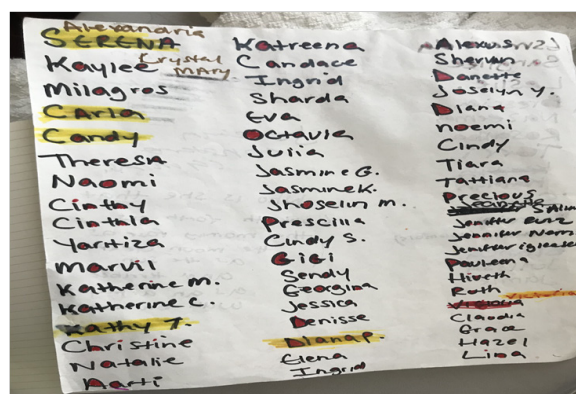 Alexandria
SERENA
Kaylee Krystal
MARY
Milagros
Carla
Candy
Theresa
Naomi
Cinthy
Cinthia
Yaritiza
Marvil
Katherine M.
Katherine C.
Kathy T.
Christine
Natalie
Katreena
Candace
Ingrid
Sharda
Eva
Octavia
Julia
Jasmine G.
Jasmine K.
Jhoselin M.
Prescilla
Cindy S.
Gigi
Sendy
Georgina
Jessica
Denisse
Diana P.
Elena
Ingrid
Alexus
Danette
Joselyn Y.
Diana
noemi
Cindy
Tiara
Tattiana
Precious
Jennifer
Jennifer
Jennifer iglesias
Ruth
Claudia
Grace
Hazel
Lina